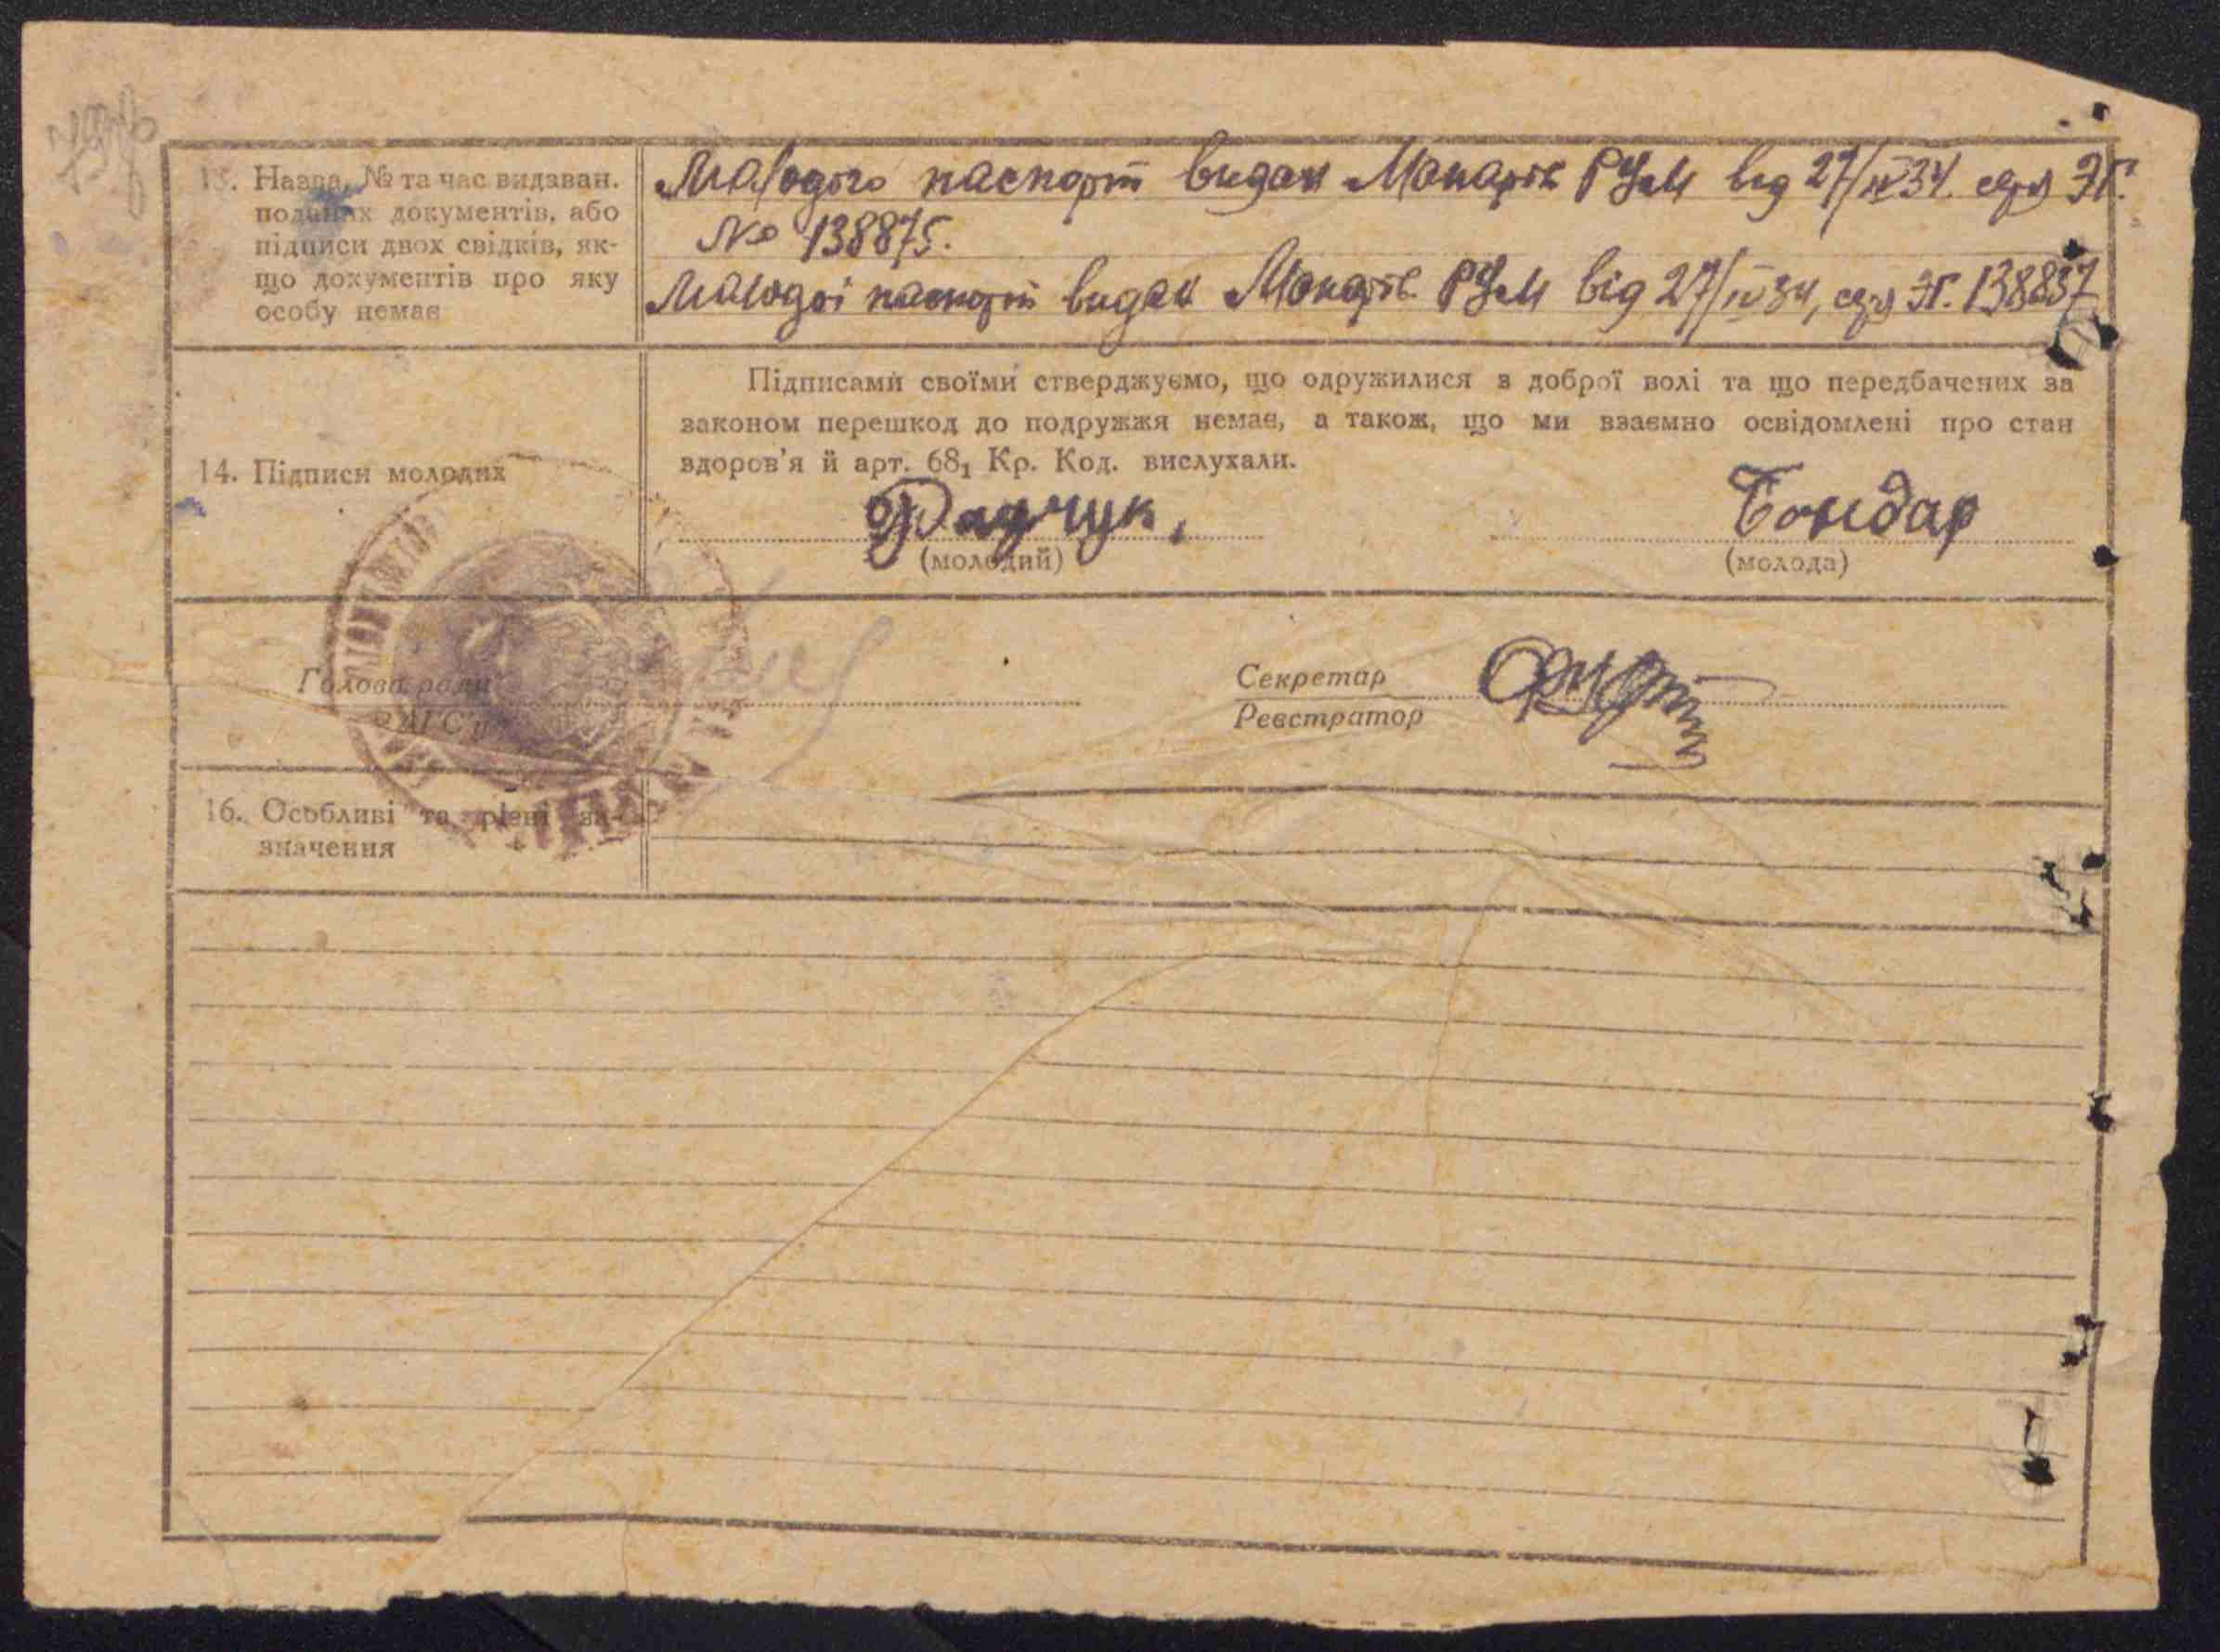 13. Назва, № та час видаван.
поданих документів, або
підписи двох свідків, як-
що документів про яку
особу немає
Молодого паспорт видан Макарів РУМ від 27/IV 34. серія ЭГ.
№ 138875.
Молодої паспорт видан Макарів РУМ від 27/IV 34, серія ЭГ. 138837
14. Підписи молодих
Підписами своїми стверджуємо, що одружилися з доброї волі та що передбачених за
законом перешкод до подружжя немає, а також, що ми взаємно освідомлені про стан
здоров'я й арт. 68₁ Кр. Код. вислухали.
Бондар
(молодий)
(молода)
Голова ради
ЗАГС'у
Секретар
Реєстратор
16. Особливі та різні за-
значення